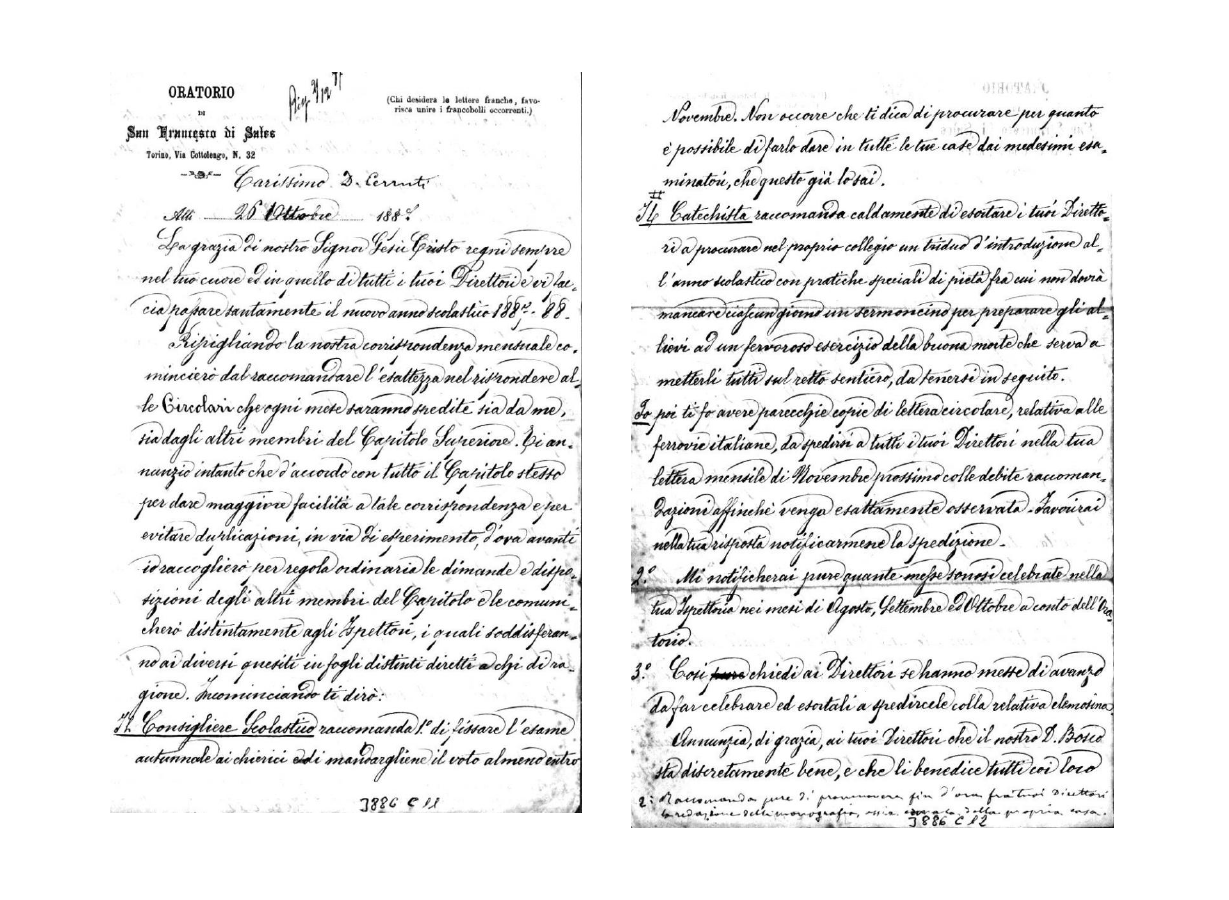 ORATORIO
DI
San Francesco di Sales
Torino, Via Cottolengo, N. 32
Risp 2/12 87
(Chi desidera le lettere franche, favo-
risca unire i francobolli occorrenti.)
Carissimo D. Cerruti
Alli 26 Ottobre 1887
La grazia di nostro Signor Gesù Cristo regni sempre
nel tuo cuore ed in quello di tutti i tuoi Direttori e vi fac-
cia passare santamente il nuovo anno scolastico 1887-88.
Ripigliando la nostra corrispondenza mensuale co-
mincierò dal raccomandare l'esattezza nel rispondere al-
le Circolari che ogni mese saranno spedite sia da me,
sia dagli altri membri del Capitolo Superiore. Ti an-
nunzio intanto che d'accordo con tutto il Capitolo stesso
per dare maggiore facilità a tale corrispondenza e per
evitare duplicazioni, in via di esperimento, d'ora avanti
io raccoglierò per regola ordinaria le dimande e dispo-
sizioni degli altri membri del Capitolo e le comuni-
cherò distintamente agli Ispettori, i quali soddisferan-
no ai diversi quesiti in fogli distinti diretti a chi di ra-
gione. Incominciando ti dirò:
Il Consigliere Scolastico raccomanda 1.° di fissare l'esame
autunnale ai chierici e di mandargliene il voto almeno entro
J886 C 11
Novembre. Non occorre che ti dica di procurare per quanto
è possibile di farlo dare in tutte le tue case dai medesimi esa-
minatori, che questo già lo sai.
II
Il Catechista raccomanda caldamente di esortare i tuoi Diretto-
ri a procurare nel proprio collegio un triduo d'introduzione al-
l'anno scolastico con pratiche speciali di pietà fra cui non dovrà
mancare ciascun giorno un sermoncino per preparare gli al-
lievi ad un fervoroso esercizio della buona morte che serva a
metterli tutti sul retto sentiero, da tenersi in seguito.
Io poi ti fo avere parecchie copie di lettera circolare, relativa alle
ferrovie italiane, da spedirsi a tutti i tuoi Direttori nella tua
lettera mensile di Novembre prossimo colle debite raccoman-
dazioni affinchè venga esattamente osservata. Favorirai
nella tua risposta notificarmene la spedizione.
2.° Mi notificherai pure quante messe sonosi celebrate nella
tua Ispettoria nei mesi di Agosto, Settembre ed Ottobre a conto dell'Ora-
torio.
3.° Così pure chiedi ai Direttori se hanno messe di avanzo
da far celebrare ed esortali a spedircele colla relativa elemosina.
Annunzia, di grazia, ai tuoi Direttori che il nostro D. Bosco
sta discretamente bene, e che li benedice tutti coi loro
2.° Raccomanda pure di promuovere fin d'ora fra tuoi Direttori
la redazione della monografia, ossia della propria casa.
J886 C 12